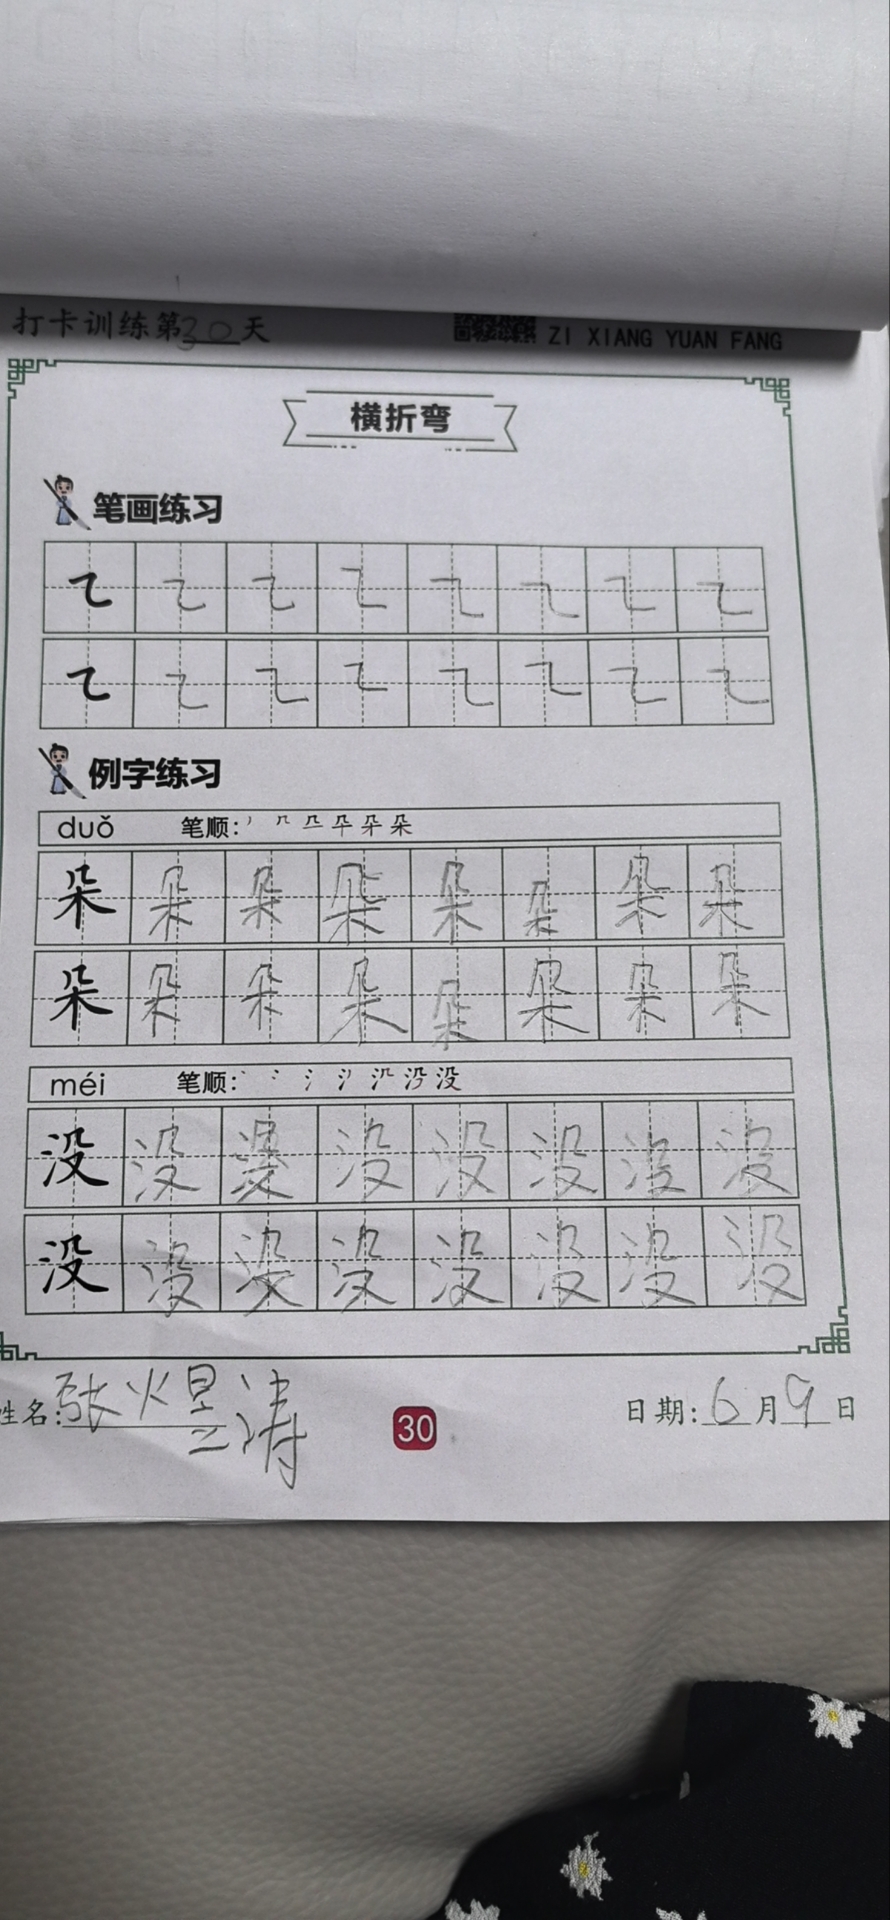 打卡训练第30天 ZI XIANG YUAN FANG
横折弯
笔画练习
㇍ ㇍ ㇍ ㇍ ㇍ ㇍ ㇍ ㇍
㇍ ㇍ ㇍ ㇍ ㇍ ㇍ ㇍ ㇍
例字练习
duǒ 笔顺:
朵 朵 朵 朵 朵 朵 朵 朵
朵 朵 朵 朵 朵 朵 朵 朵
méi 笔顺:
没 没 没 没 没 没 没 没
没 没 没 没 没 没 没 没
姓名:张火昱涛 30 日期:6月9日